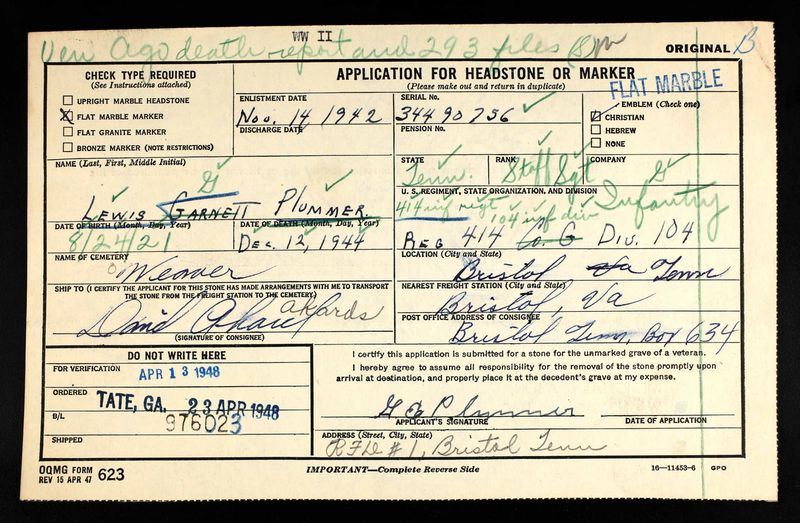 WW II
Ver Ago death report and 293 files
ORIGINAL B
CHECK TYPE REQUIRED
(See Instructions attached)
UPRIGHT MARBLE HEADSTONE
FLAT MARBLE MARKER
FLAT GRANITE MARKER
BRONZE MARKER (NOTE RESTRICTIONS)
APPLICATION FOR HEADSTONE OR MARKER
(Please make out and return in duplicate)
FLAT MARBLE
ENLISTMENT DATE
Nov. 14 1942
DISCHARGE DATE
SERIAL No.
34490756
PENSION No.
EMBLEM (Check one)
CHRISTIAN
HEBREW
NONE
NAME (Last, First, Middle Initial)
G
LEWIS GARNETT PLUMMER
STATE
Tenn.
RANK
Staff Sgt
COMPANY
G
U. S. REGIMENT, STATE ORGANIZATION, AND DIVISION
Infantry
414 inf regt
104 inf div
REG 414 Co. G Div. 104
DATE OF BIRTH (Month, Day, Year)
8/24/21
DATE OF DEATH (Month, Day, Year)
Dec. 12, 1944
NAME OF CEMETERY
Weaver
LOCATION (City and State)
Bristol Va Tenn
SHIP TO (I CERTIFY THE APPLICANT FOR THIS STONE HAS MADE ARRANGEMENTS WITH ME TO TRANSPORT
THE STONE FROM THE FREIGHT STATION TO THE CEMETERY)
David Akard Akards
(SIGNATURE OF CONSIGNEE)
NEAREST FREIGHT STATION (City and State)
Bristol, Va
POST OFFICE ADDRESS OF CONSIGNEE
Bristol Tenn, Box 634
DO NOT WRITE HERE
FOR VERIFICATION
APR 13 1948
ORDERED
TATE, GA. 23 APR 1948
B/L
976023
SHIPPED
I certify this application is submitted for a stone for the unmarked grave of a veteran.
I hereby agree to assume all responsibility for the removal of the stone promptly upon
arrival at destination, and properly place it at the decedent's grave at my expense.
G E Plummer
APPLICANT'S SIGNATURE
DATE OF APPLICATION
ADDRESS (Street, City, State)
RFD #1, Bristol Tenn
OQMG FORM
REV 15 APR 47 623
IMPORTANT—Complete Reverse Side
16—11453-6 GPO